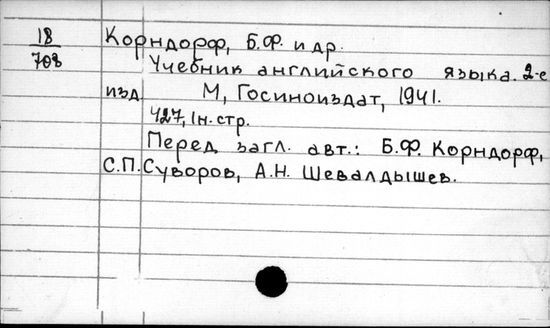 18
708
Корндорф, Б.Ф. и др.
Учебник английского языка. 2-е
изд М, Госиноиздат, 1941.
427, 1н. стр.
Перед загл. авт.: Б.Ф. Корндорф,
С.П. Суворов, А.Н. Шевалдышев.